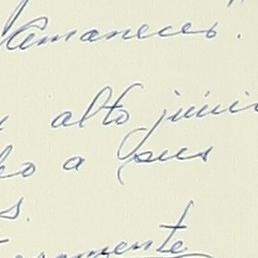 amaneces".
alto juici
ho a sus
s.
eramente